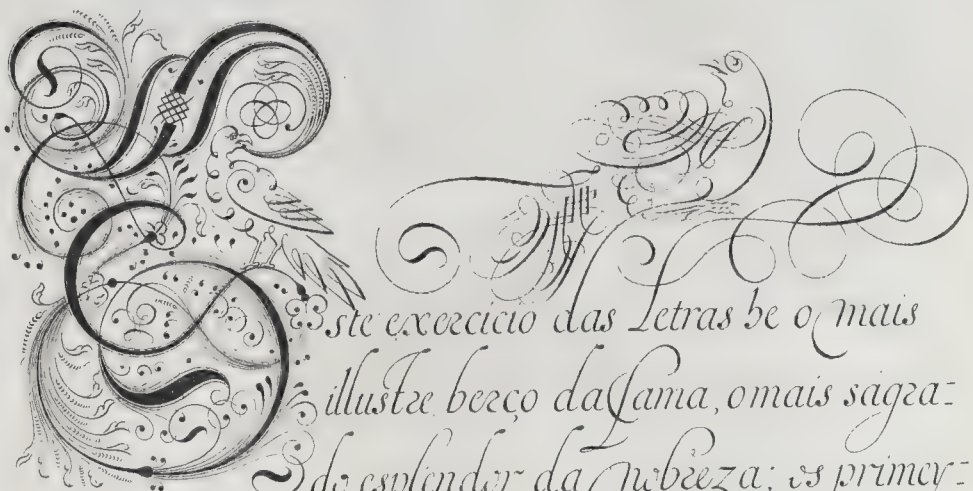 Este exercicio das Letras he o mais
illustre berço da fama, o mais sagra=
do esplendor da Nobreza; os primey=